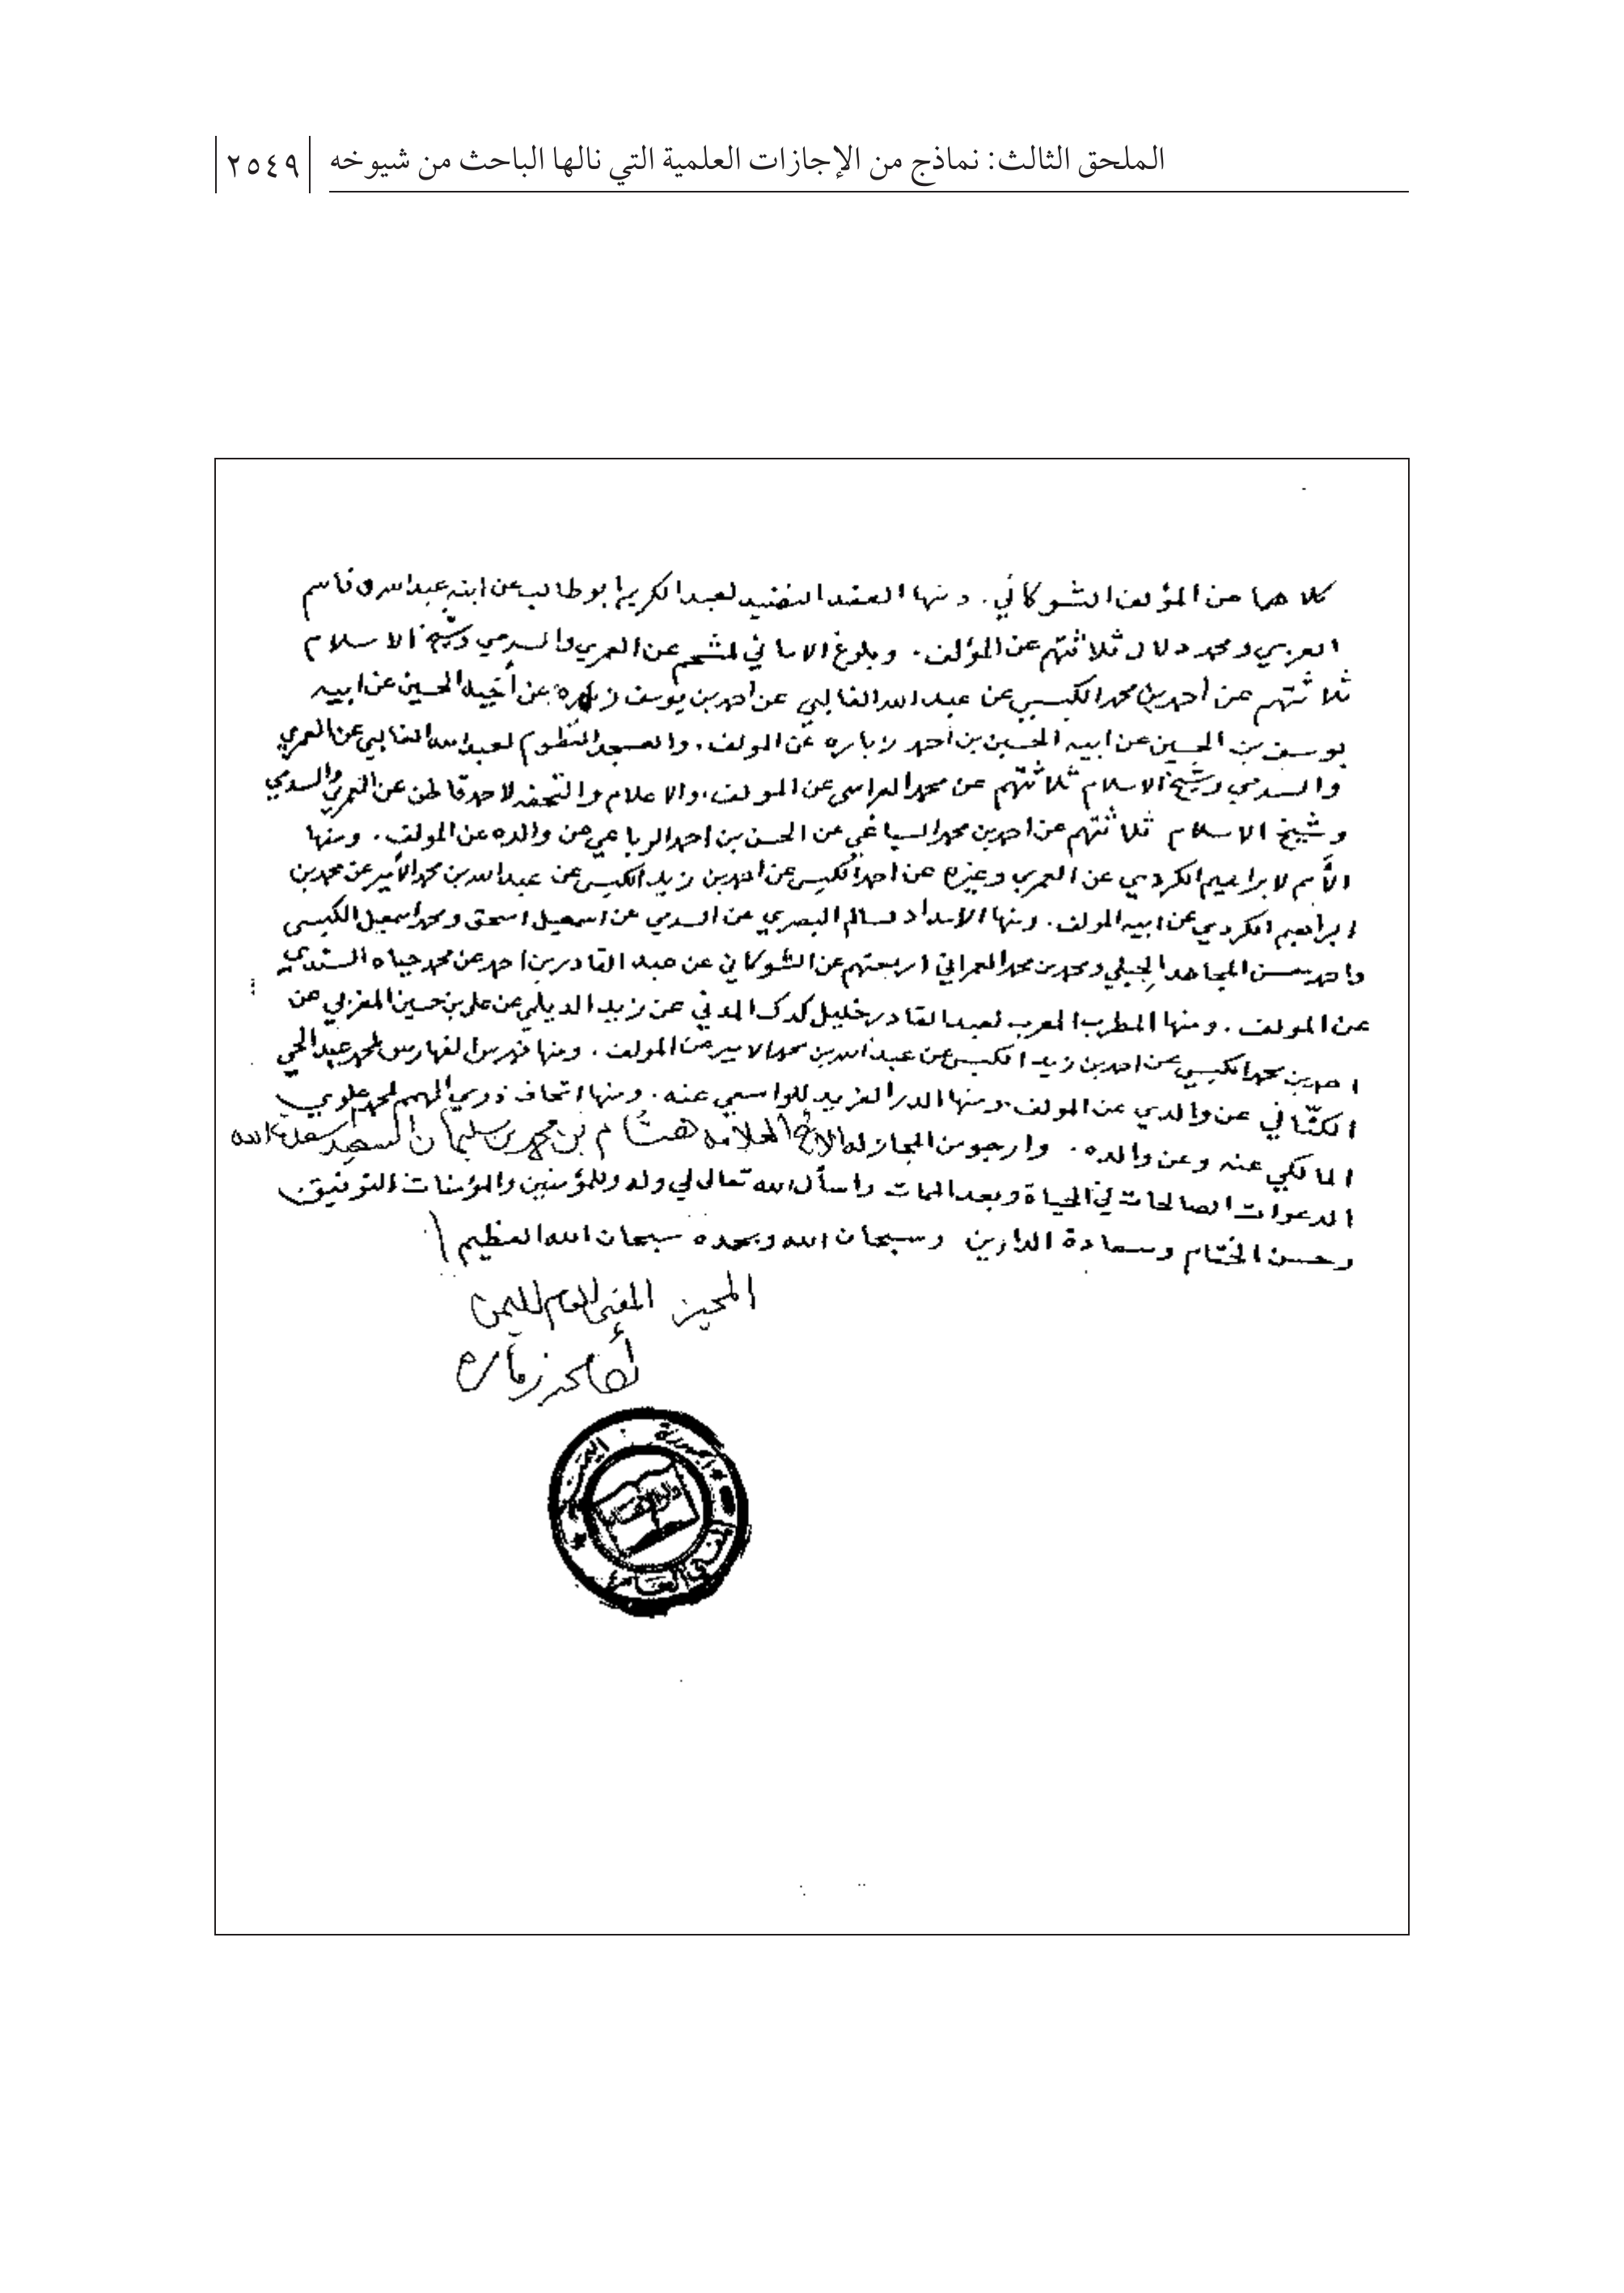 الملحق الثالث: نماذج من الإجازات العلمية التي نالها الباحث من شيوخه
٢٥٤٩
كلاهما عن المؤلف الشوكاني. ومنها العقد النضيد لعبد الكريم ابو طالب عن ابنه عبد الله وقاسم
العزبي ومحمد دلال ثلاثتهم عن المؤلف. وبلوغ الاماني لمشحم عن العمري والسدمي وشيخ الاسلام
ثلاثتهم عن احمد بن محمد الكبسي عن عبد الله الغالبي عن احمد بن يوسف زباره عن أخيه الحسين عن ابيه
يوسف بن الحسين عن ابيه الحسين بن احمد زباره عن المولف. والعسجد المنظوم لعبد الله الغالبي عن العمري
والسدمي وشيخ الاسلام ثلاثتهم عن محمد العراسي عن المولف. والاعلام والتحف لاحمد قاطن عن العمري والسدمي
وشيخ الاسلام ثلاثتهم عن احمد بن محمد السياغي عن الحسن بن احمد الرباعي عن والده عن المولف. ومنها
الأمم لابراهيم الكردي عن العمري وغيره عن احمد الكبسي عن احمد بن زيد الكبسي عن عبد الله بن محمد الأمير عن محمد بن
ابراهيم الكردي عن ابيه المولف. ومنها الامداد لسالم البصري عن السدمي عن اسمعيل اسحق ومحمد اسمعيل الكبسي
واحمد حسن المجاهد الجبلي ومحمد بن محمد العمراني اربعتهم عن الشوكاني عن عبد القادر بن احمد عن محمد حياه السندي
عن المولف. ومنها المطرب المعرب لعبد القادر خليل كدك المدني عن زيد الديلمي عن علي بن حسين المغربي عن
احمد بن محمد الكبسي عن احمد بن زيد الكبسي عن عبد الله بن محمد الامير عن المولف. ومنها فهرس الفهارس لمحمد عبد الحي
الكتّاني عن والدي عن المولف ومنها الدر الفريد للواسعي عنه. ومنها اتحاف ذوي الهمم لمحمد علوي
المالكي عنه وعن والده. وارجو من المجاز له الأخ العلامه هشام بن محمد بن سليمان السعيد الله
الدعوات الصالحات في الحياة وبعد الممات واسأل الله تعالى لي وله وللمؤمنين والمؤمنات التوفيق
وحسن الختام وسعادة الدارين وسبحان الله وبحمده سبحان الله العظيم
المجيز المفتي العام لليمن
أحمد محمد زباره
اليمنية
المفتي العام